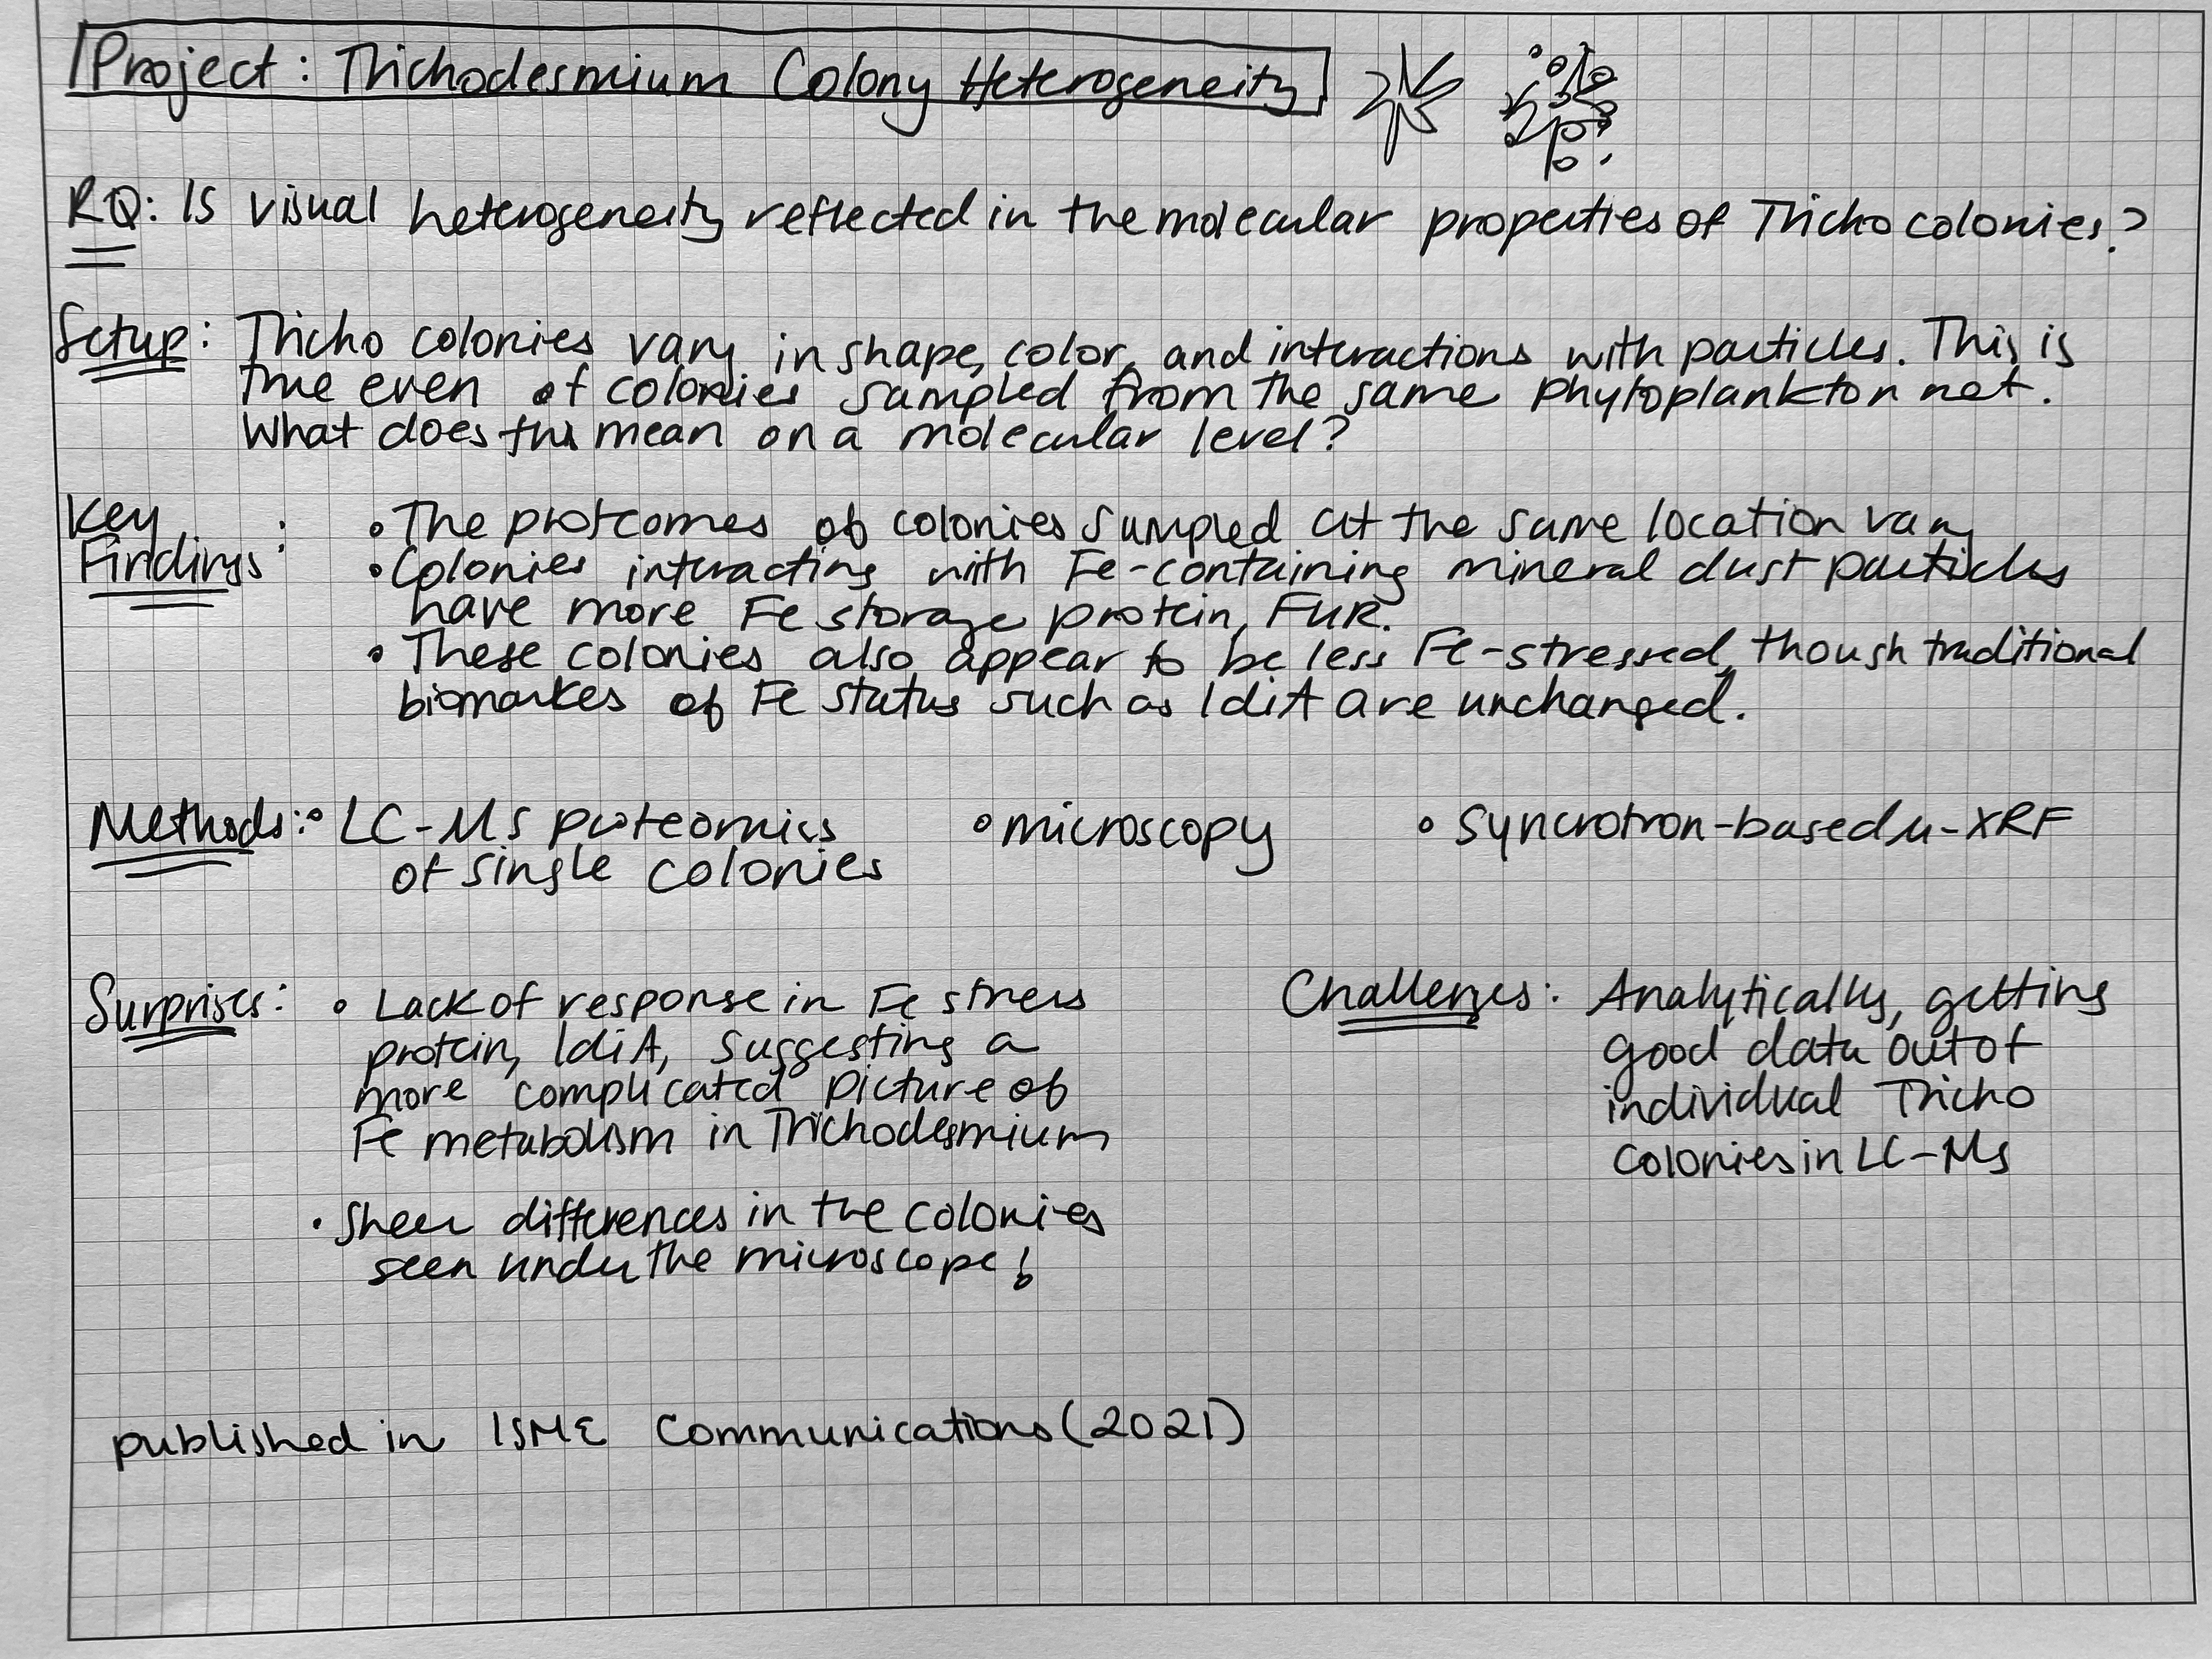 Project: Trichodesmium Colony Heterogeneity
RQ: Is visual heterogeneity reflected in the molecular properties of Tricho colonies?
Setup: Tricho colonies vary in shape, color, and interactions with particles. This is
true even of colonies sampled from the same phytoplankton net.
What does this mean on a molecular level?
Key
Findings:
• The proteomes of colonies sampled at the same location vary
• Colonies interacting with Fe-containing mineral dust particles
have more Fe storage protein, FUR.
• These colonies also appear to be less Fe-stressed, though traditional
biomarkes of Fe status such as IdiA are unchanged.
Methods: • LC-MS proteomics
of single colonies
• microscopy
• syncrotron-based μ-XRF
Surprises: • Lack of response in Fe stress
protein, IdiA, suggesting a
more complicated picture of
Fe metabolism in Trichodesmium
• Sheer differences in the colonies
seen under the microscope!
Challenges: Analytically, getting
good data out of
individual Tricho
colonies in LC-MS
published in ISME Communications (2021)